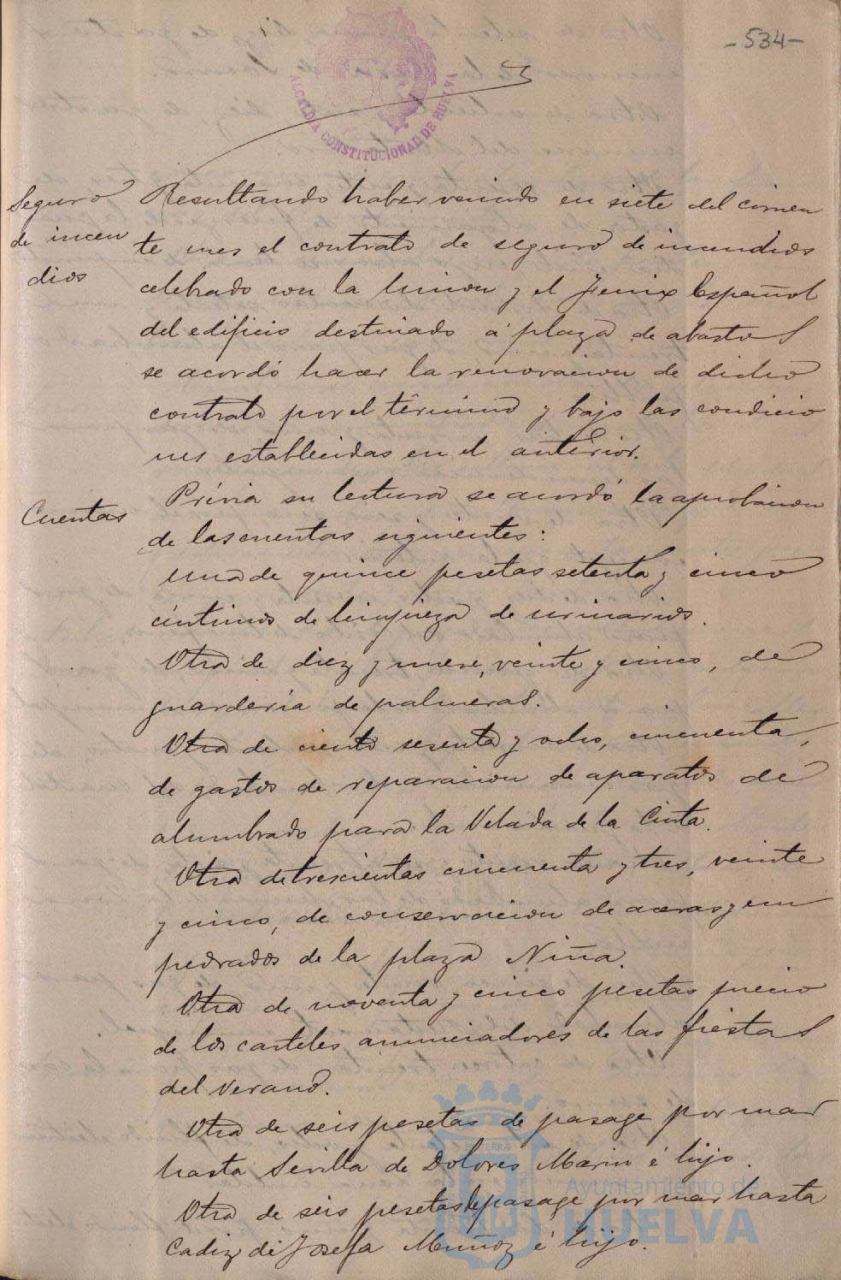 -534-
ALCALDIA CONSTITUCIONAL DE HUELVA
Seguro
de incen
dios
Resultando haber vencido en siete del corrien
te mes el contrato de seguro de incendios
celebrado con la Union y el Fenix Español
del edificio destinado á plaza de abastos
se acordó hacer la renovacion de dicho
contrato por el término y bajo las condicio
nes establecidas en el anterior.
Cuentas
Prévia su lectura se acordó la aprobacion
de las cuentas siguientes:
Una de quince pesetas setenta y cinco
céntimos de limpieza de urinarios.
Otra de diez y nueve, veinte y cinco, de
guardería de palmeras.
Otra de ciento sesenta y ocho, cincuenta,
de gastos de reparacion de aparatos de
alumbrado para la Velada de la Cinta.
Otra de trescientas cincuenta y tres, veinte
y cinco, de conservacion de aceras y em
pedrados de la plaza Niña.
Otra de noventa y cinco pesetas precio
de los carteles anunciadores de las fiestas
del verano.
Otra de seis pesetas de pasage por mar
hasta Sevilla de Dolores Marin é hijo.
Otra de seis pesetas de pasage por mar hasta
Cadiz de Josefa Muñoz é hijo.
Ayuntamiento de
HUELVA